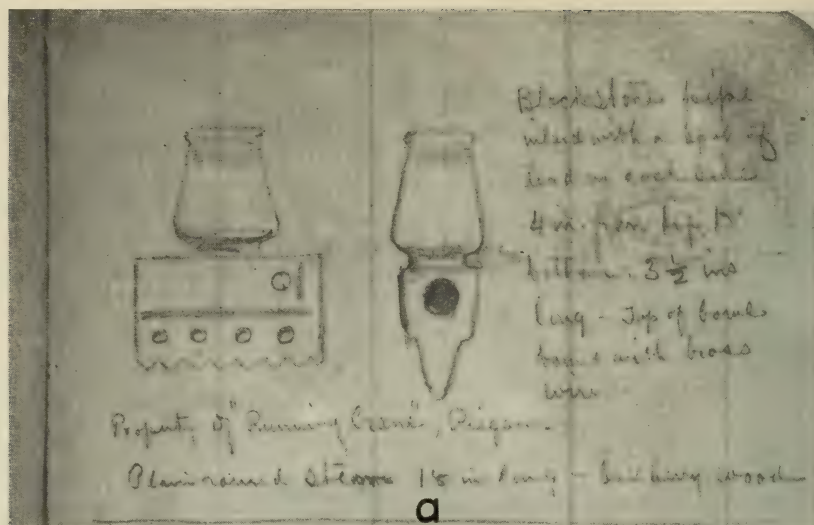 Black stone pipe
inlaid with a spot of
lead on each side
4 in. from top to
bottom. 3 1/2 ins
long - Top of bowl
bound with brass
wire
Property of "Running Crane", Piegan.
Plain round stem 18 in long - wood
a